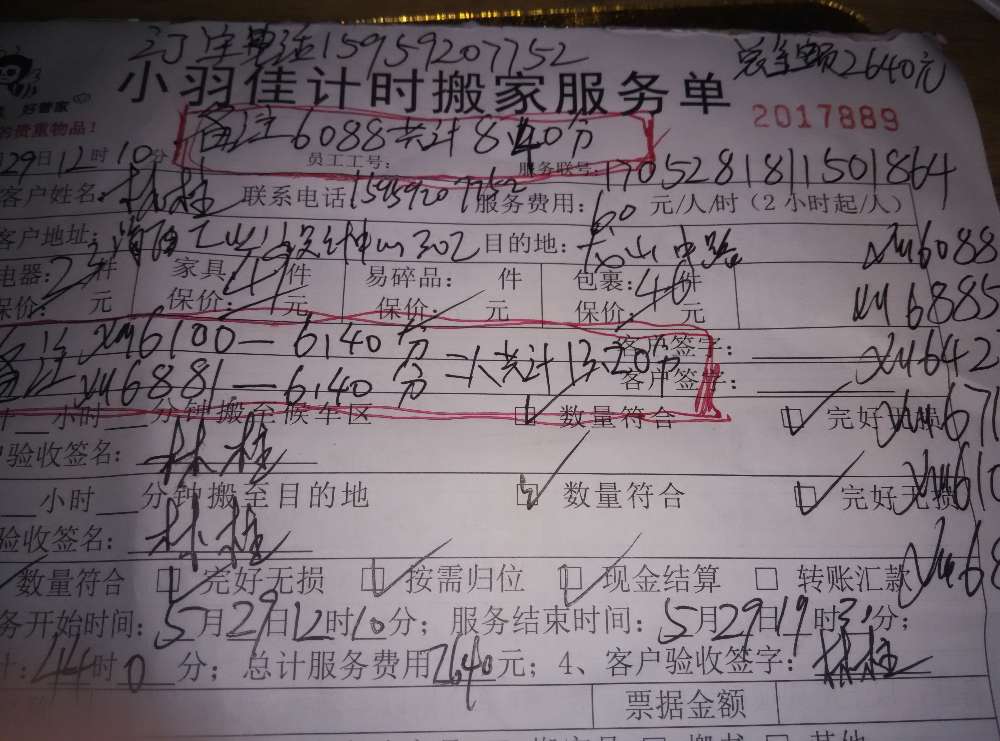 订单电话15959207752 总金额2640元
好管家
小羽佳计时搬家服务单
的贵重物品！ 2017889
备注6088共计840分
月29日12时10分 员工工号： 服务联号：1705281811501864
客户姓名：林桂 联系电话15959207752 服务费用：60元/人/时（2小时起/人）
客户地址： 302 目的地： 山中路 XM6088
电器：2件 家具：49件 易碎品： 件 包裹：40件
保价： 元 保价： 元 保价： 元 保价： 元 XM6885
备注XM6100—6.140分 客户签字： XM642
备注XM6881—6.140分 二人共计1320分 客户签字：
小时 分钟搬至候车区 数量符合 完好无损 XM67
验收签名：林桂
小时 分钟搬至目的地 数量符合 完好无损 XM610
验收签名：林桂 XM68
数量符合 完好无损 按需归位 现金结算 转账汇款
务开始时间：5月29日12时10分；服务结束时间：5月29日19时31分；
计：44时0分；总计服务费用2640元；4、客户验收签字：林桂
票据金额